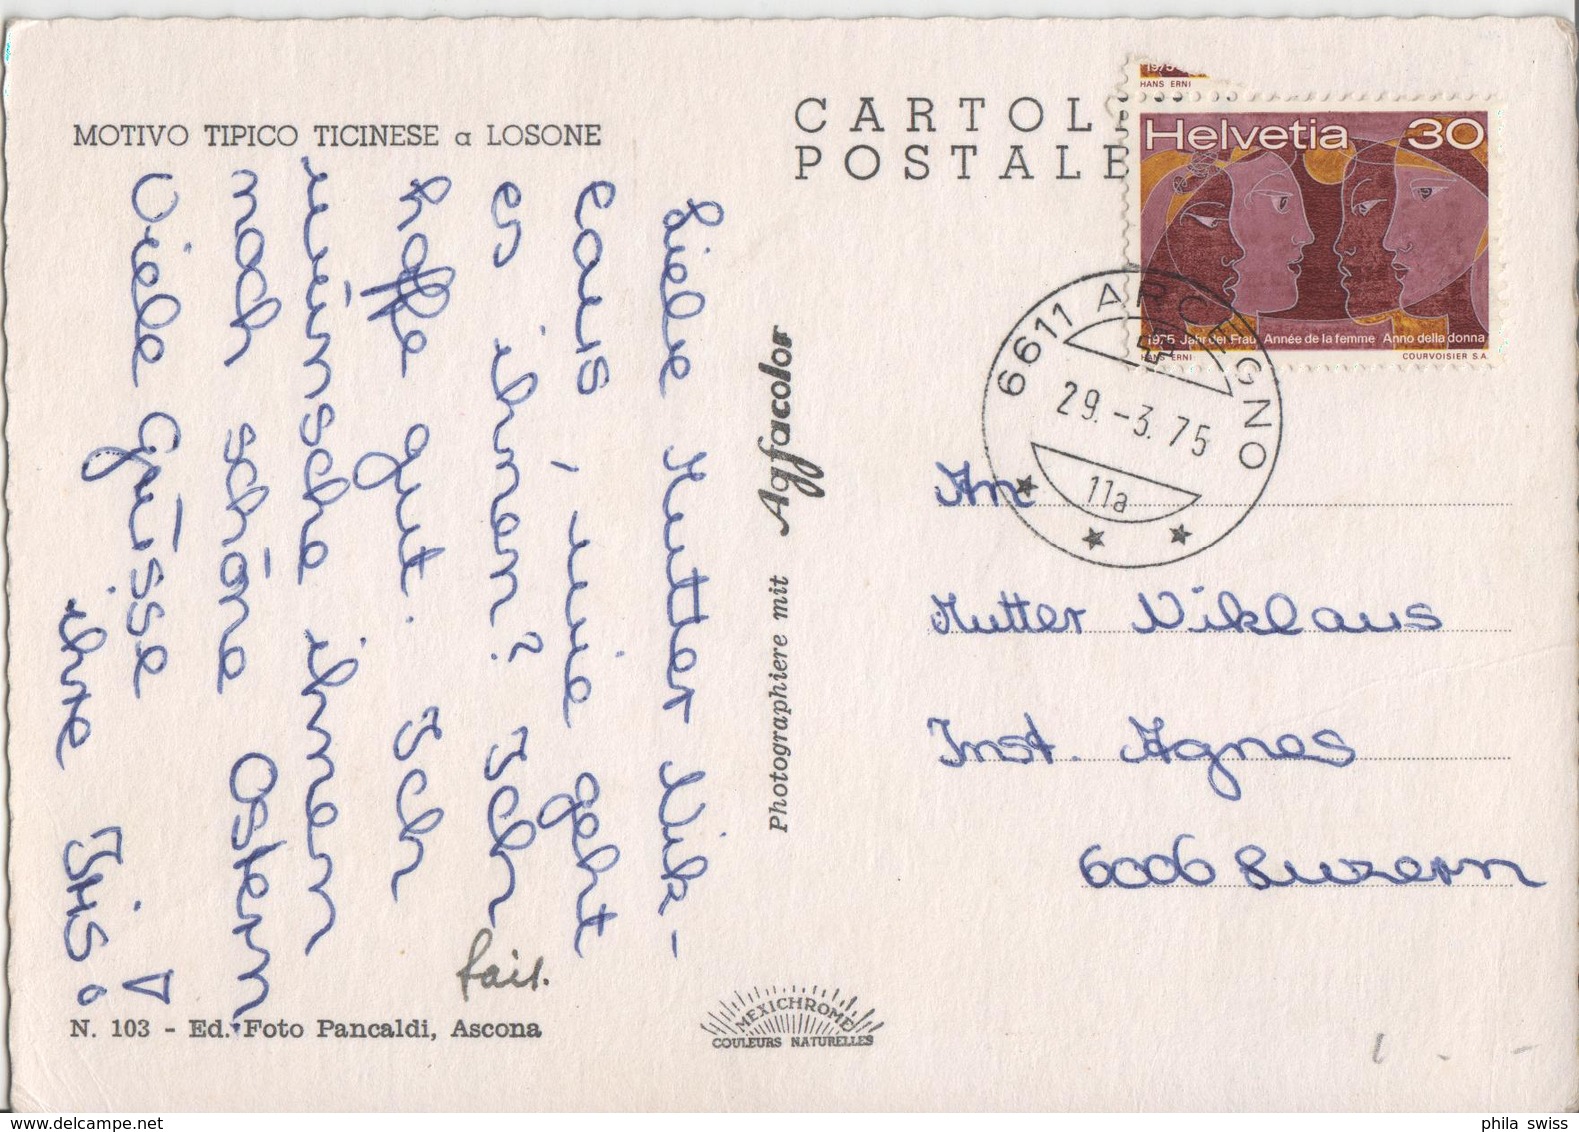 MOTIVO TIPICO TICINESE a LOSONE
Liebe Hutter Nik-
laus, wie geht
es ihnen? Ich
hoffe gut. Ich
wünsche ihnen
noch schöne Ostern
Viele Grüsse
ihre
fait.
N. 103 - Ed. Foto Pancaldi, Ascona
Photographiere mit Agfacolor
MEXICHROME
COULEURS NATURELLES
CARTOLI
POSTALE
HANS ERNI
Helvetia 30
1975 Jahr der Frau Année de la femme Anno della donna
HANS ERNI COURVOISIER S.A.
6611 ARCEGNO
29.-3.75
11a
An
Hutter Niklaus
Inst. Agnes
6006 Luzern
phila swiss